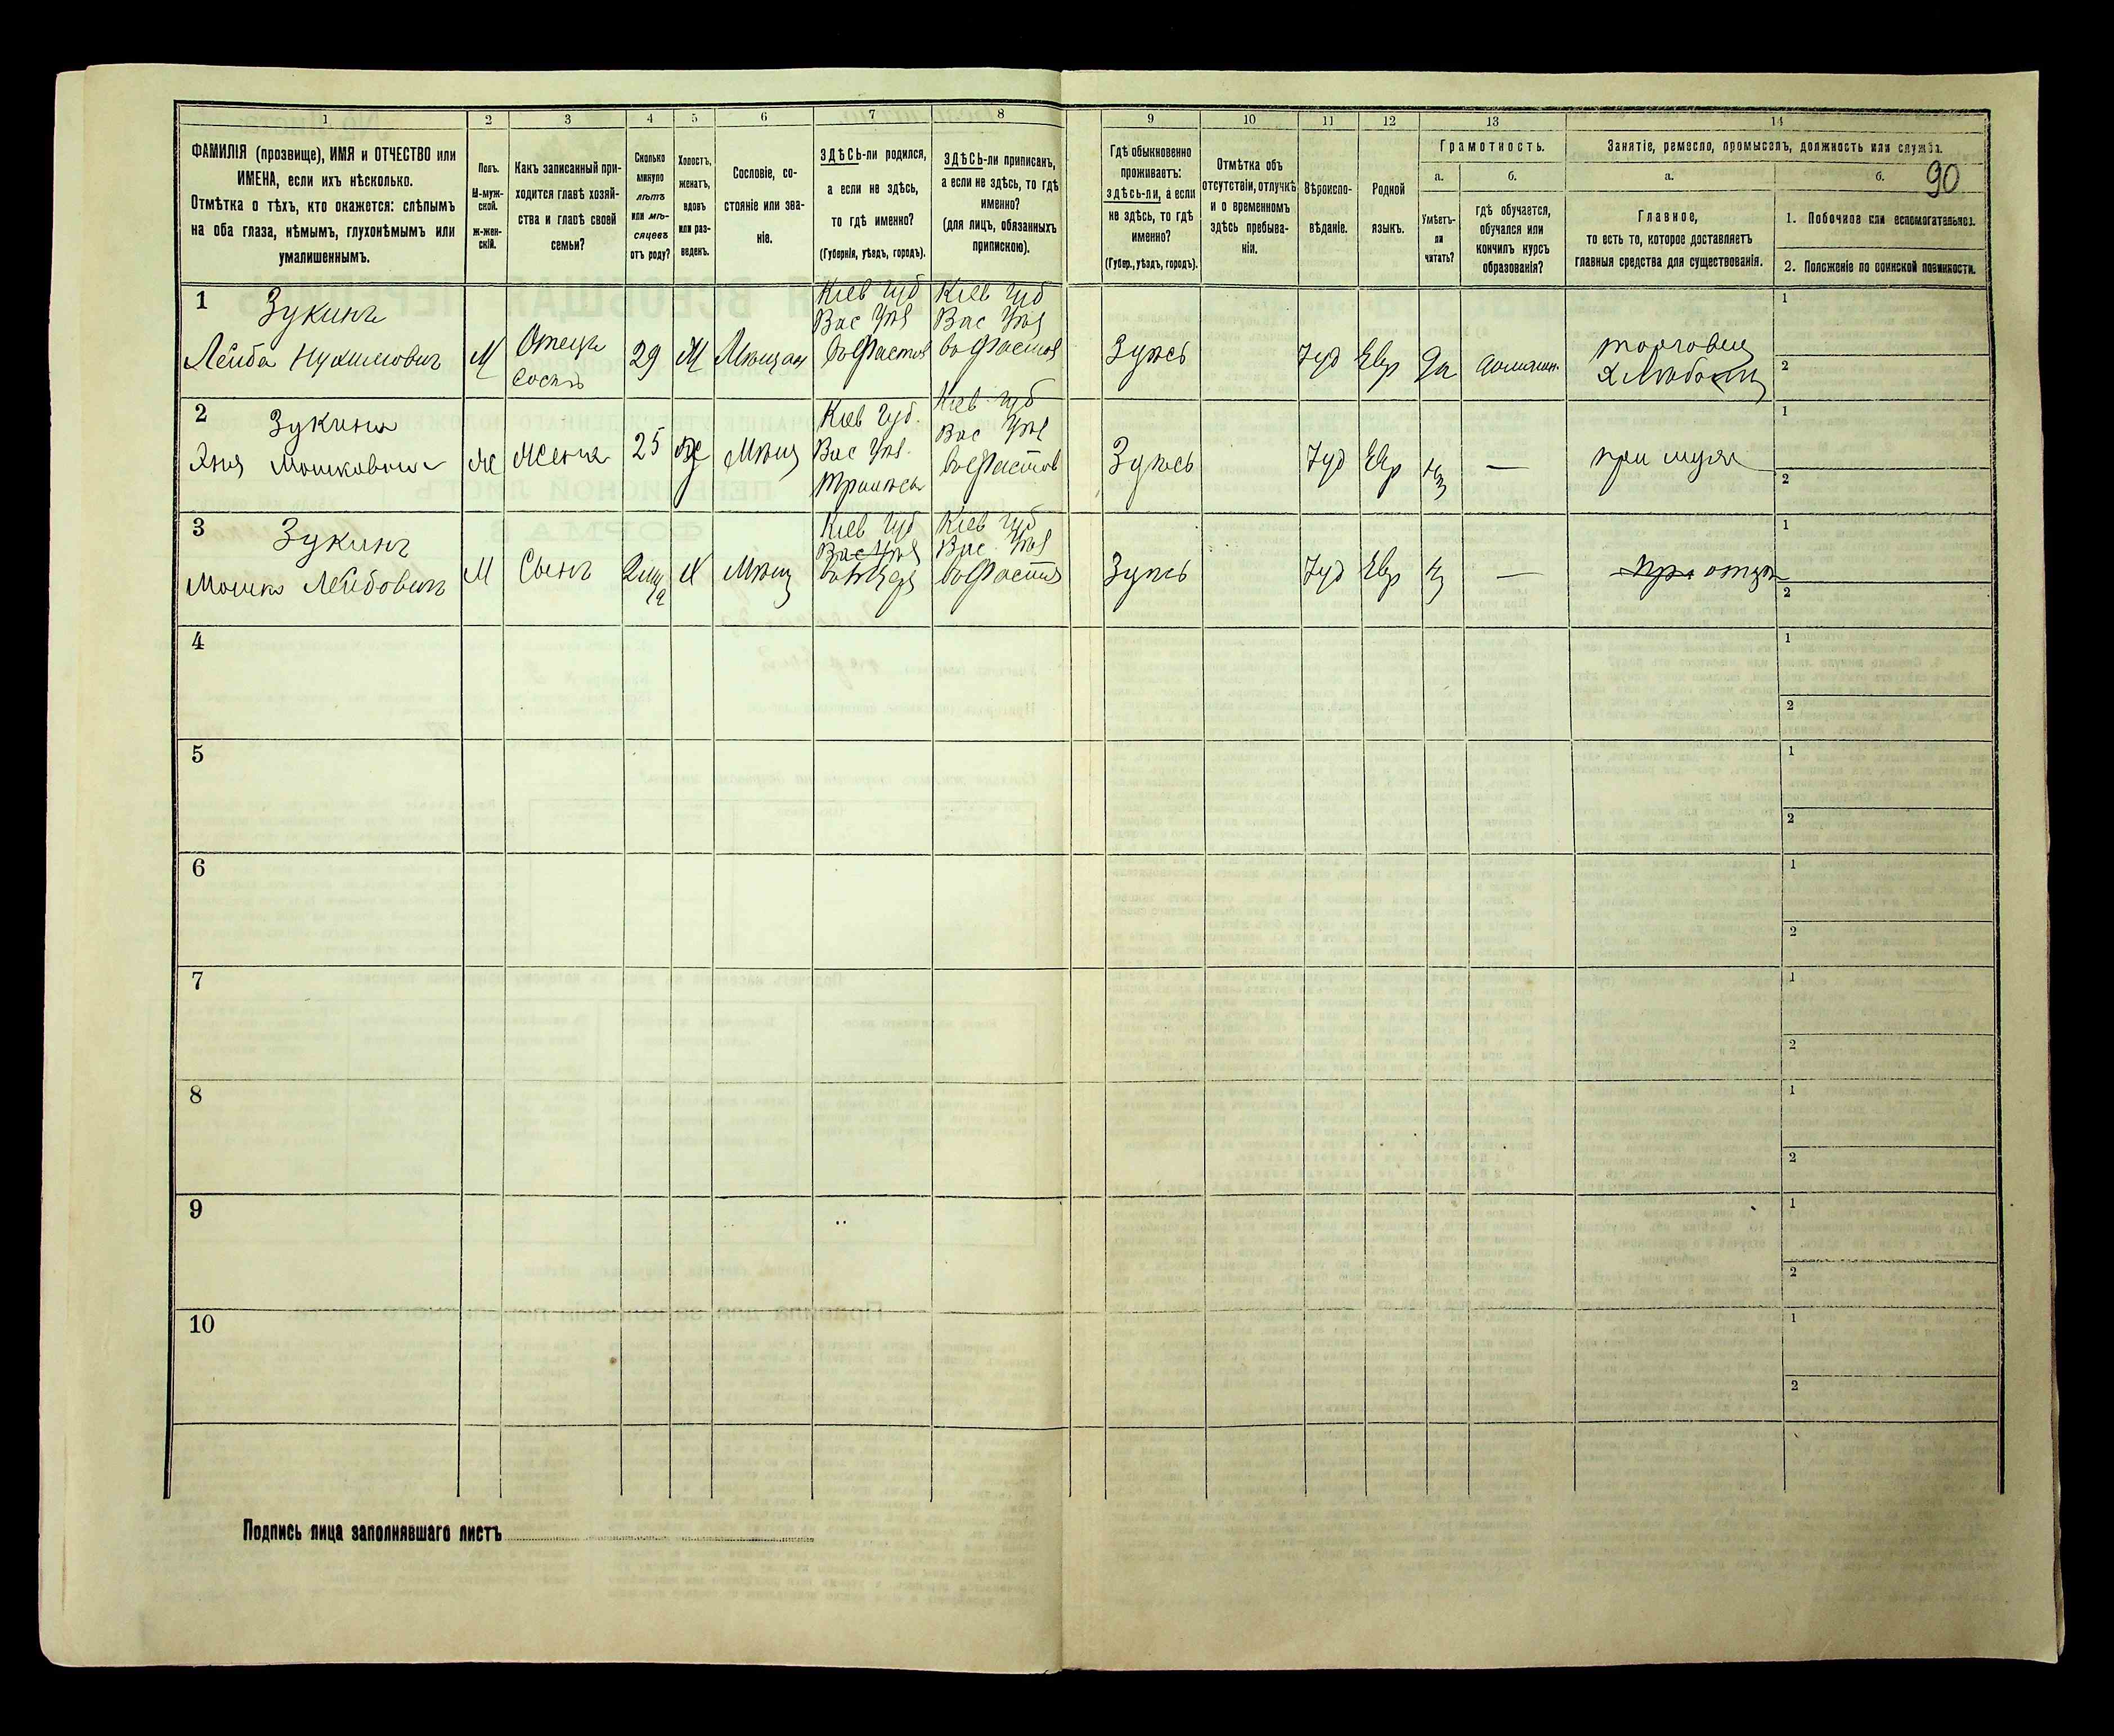 1 2 3 4 5 6 7 8 9 10 11 12 13 14
90
ФАМИЛІЯ (прозвище), ИМЯ и ОТЧЕСТВО или
ИМЕНА, если ихъ нѣсколько.
Отмѣтка о тѣхъ, кто окажется: слѣпымъ
на оба глаза, нѣмымъ, глухонѣмымъ или
умалишеннымъ.
Полъ.
М-муж-
ской.
ж-жен-
скій.
Какъ записанный при-
ходится главѣ хозяй-
ства и главѣ своей
семьи?
Сколько
минуло
лѣтъ
или мѣ-
сяцевъ
отъ роду?
Холостъ,
женатъ,
вдовъ
или раз-
веденъ.
Сословіе, со-
стояніе или зва-
ніе.
ЗДѢСЬ-ли родился,
а если не здѣсь,
то гдѣ именно?
(Губернія, уѣздъ, городъ).
ЗДѢСЬ-ли приписанъ,
а если не здѣсь, то гдѣ
именно?
(для лицъ, обязанныхъ
припискою).
Гдѣ обыкновенно
проживаетъ:
здѣсь-ли, а если
не здѣсь, то гдѣ
именно?
(Губер., уѣздъ, городъ).
Отмѣтка объ
отсутствіи, отлучкѣ
и о временномъ
здѣсь пребыва-
ніи.
Вѣроиспо-
вѣданіе.
Родной
языкъ.
Грамотность.
а.
Умѣетъ-
ли
читать?
б.
гдѣ обучается,
обучался или
кончилъ курсъ
образованія?
Занятіе, ремесло, промыселъ, должность или служба.
а.
Главное,
то есть то, которое доставляетъ
главныя средства для существованія.
б.
1. Побочное или вспомогательное.
2. Положеніе по воинской повинности.
1
Зукинъ
Лейба
М
Отецъ
29
М
Кіев губ
Вас Уѣз
Кіев губ
Вас Уѣз
Здѣсь
Іуд
Евр
Да
торговец
1
2
2
Зукина
Мошковна
Ж
Жена
25
Мѣщ
Кіев Губ.
Вас Уѣз.
Кіев губ
Вас Уѣз
Здѣсь
Іуд
Евр
—
при муже
1
2
3
Зукинъ
Мошко Лейбовичъ
М
Сынъ
Мѣщ
Кіев губ
Вас Уѣз
Кіев губ
Вас Уѣз
Здѣсь
Іуд
Евр
—
при отцѣ
1
2
4
1
2
5
1
2
6
1
2
7
1
2
8
1
2
9
1
2
10
1
2
Подпись лица заполнявшаго листъ